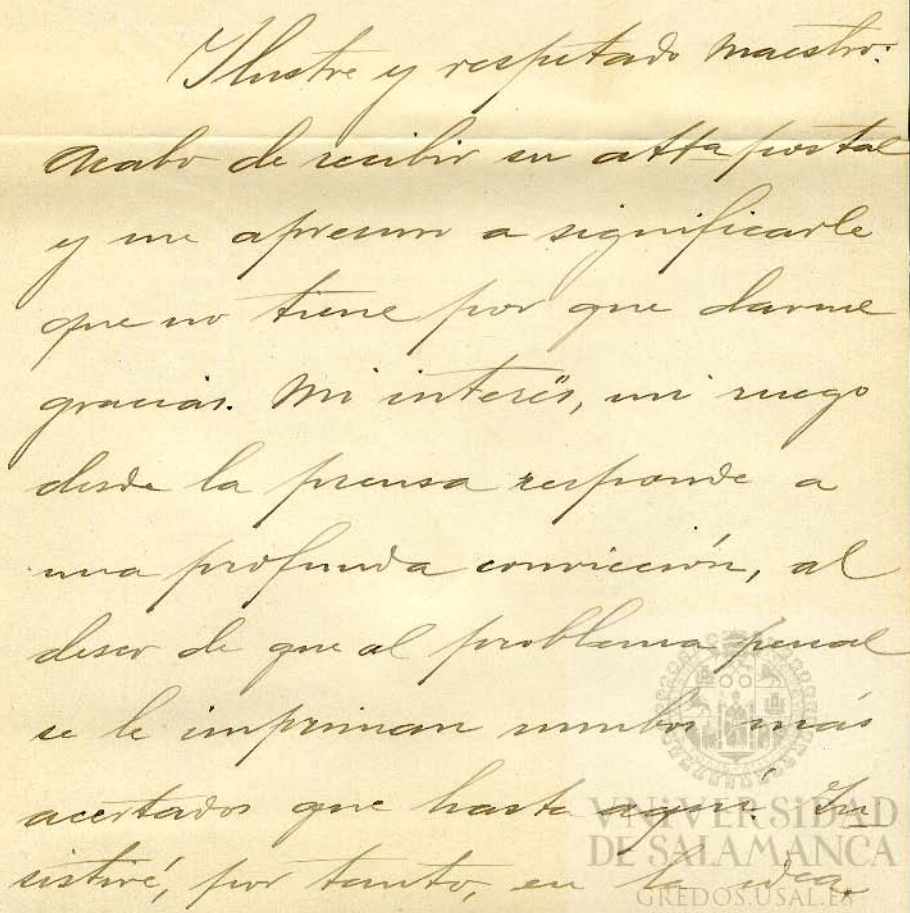 Ilustre y respetado maestro:
acabo de recibir su attª postal
y me apresuro a significarle
que no tiene por que darme
gracias. Mi interés, mi ruego
desde la prensa responde a
una profunda convicción, al
deseo de que al problema penal
se le impriman rumbos más
acertados que hasta aquí. In
sistiré, por tanto, en la idea,
VNIVERSIDAD
DE SALAMANCA
GREDOS.USAL.ES